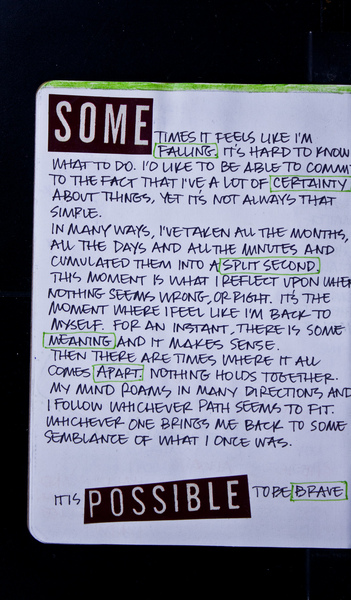 SOME
TIMES IT FEELS LIKE I'M
FALLING. IT'S HARD TO KNOW
WHAT TO DO. I'D LIKE TO BE ABLE TO COMMIT
TO THE FACT THAT I'VE A LOT OF CERTAINTY
ABOUT THINGS, YET IT'S NOT ALWAYS THAT
SIMPLE.
IN MANY WAYS, I'VE TAKEN ALL THE MONTHS,
ALL THE DAYS AND ALL THE MINUTES AND
CUMULATED THEM INTO A SPLIT SECOND.
THIS MOMENT IS WHAT I REFLECT UPON WHEN
NOTHING SEEMS WRONG, OR RIGHT. IT'S THE
MOMENT WHERE I FEEL LIKE I'M BACK TO
MYSELF. FOR AN INSTANT, THERE IS SOME
MEANING AND IT MAKES SENSE.
THEN THERE ARE TIMES WHERE IT ALL
COMES APART. NOTHING HOLDS TOGETHER.
MY MIND ROAMS IN MANY DIRECTIONS AND
I FOLLOW WHICHEVER PATH SEEMS TO FIT.
WHICHEVER ONE BRINGS ME BACK TO SOME
SEMBLANCE OF WHAT I ONCE WAS.
IT IS POSSIBLE TO BE BRAVE